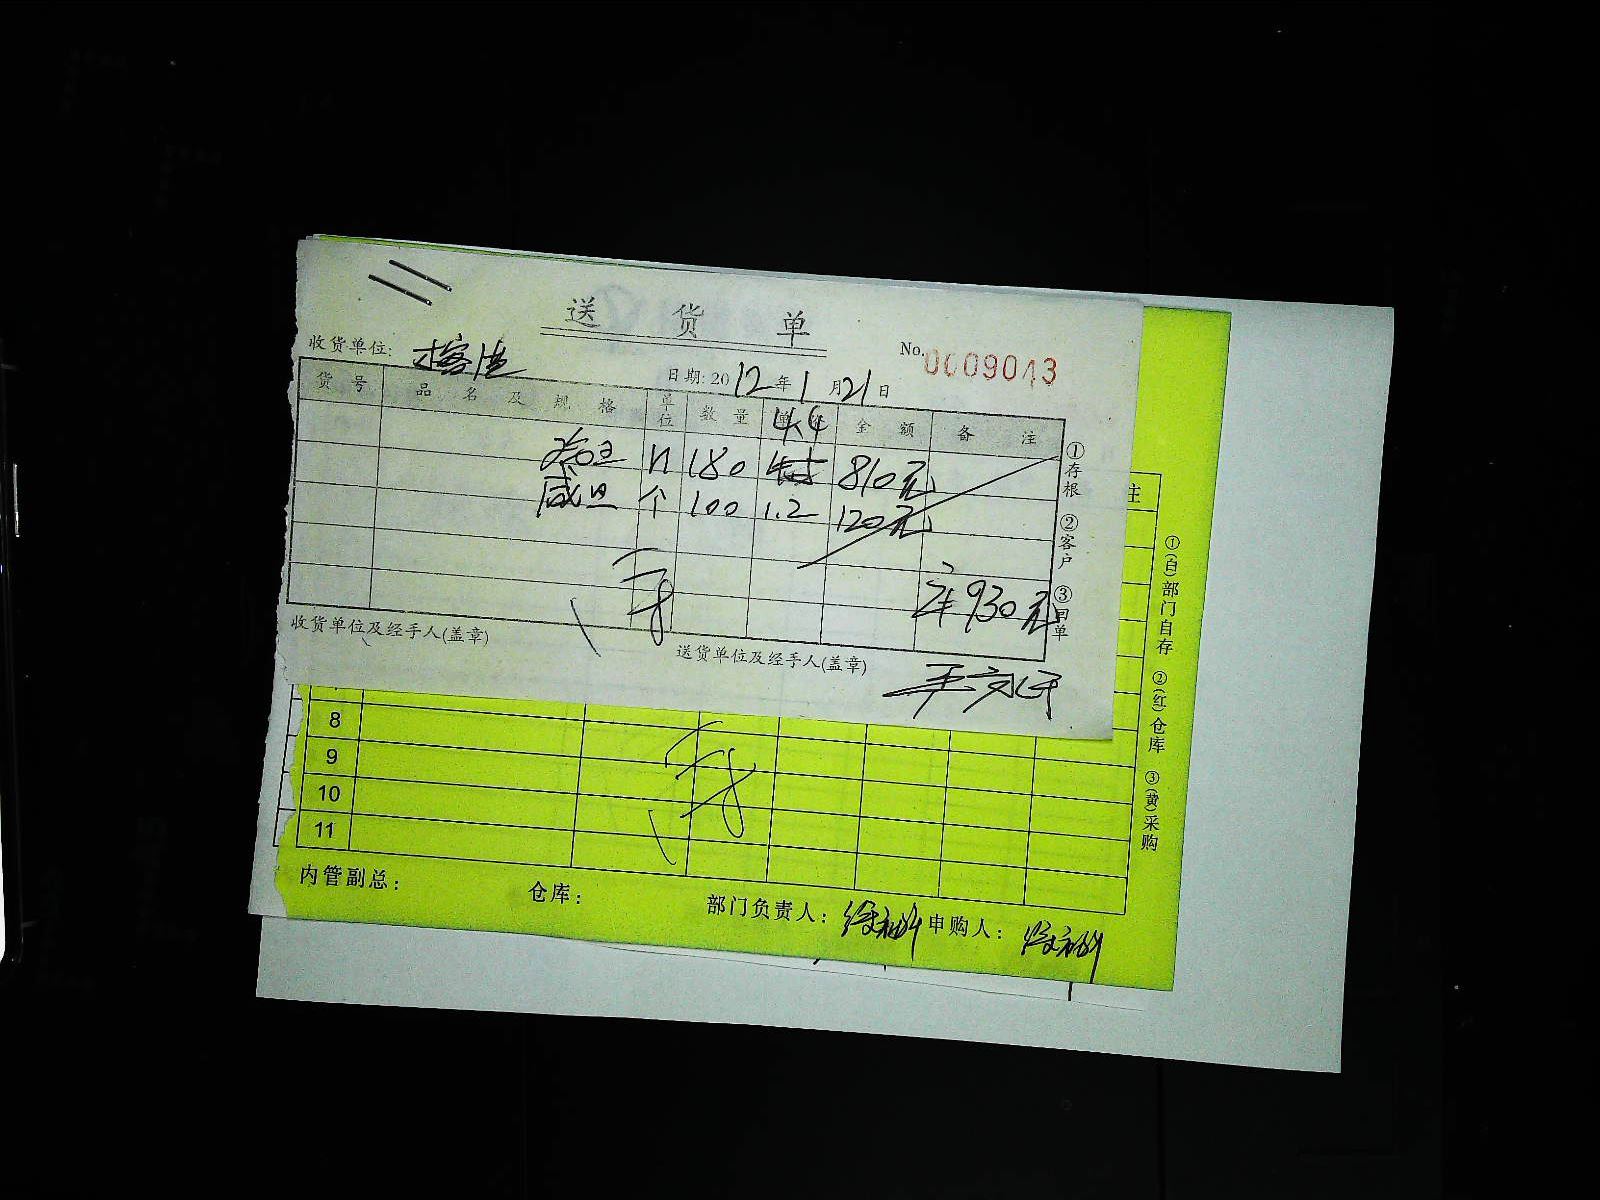 送货单
No.0009043
收货单位:
日期:2012年1月21日
货号 品名及规格 单位 数量 单价 金额 备注
4.4
180 810元
咸旦 个 100 1.2 120元
930元
收货单位及经手人(盖章)
送货单位及经手人(盖章)
①存根 ②客户 ③回单
注
8
9
10
11
①(白)部门自存 ②(红)仓库 ③(黄)采购
内管副总: 仓库: 部门负责人: 申购人: